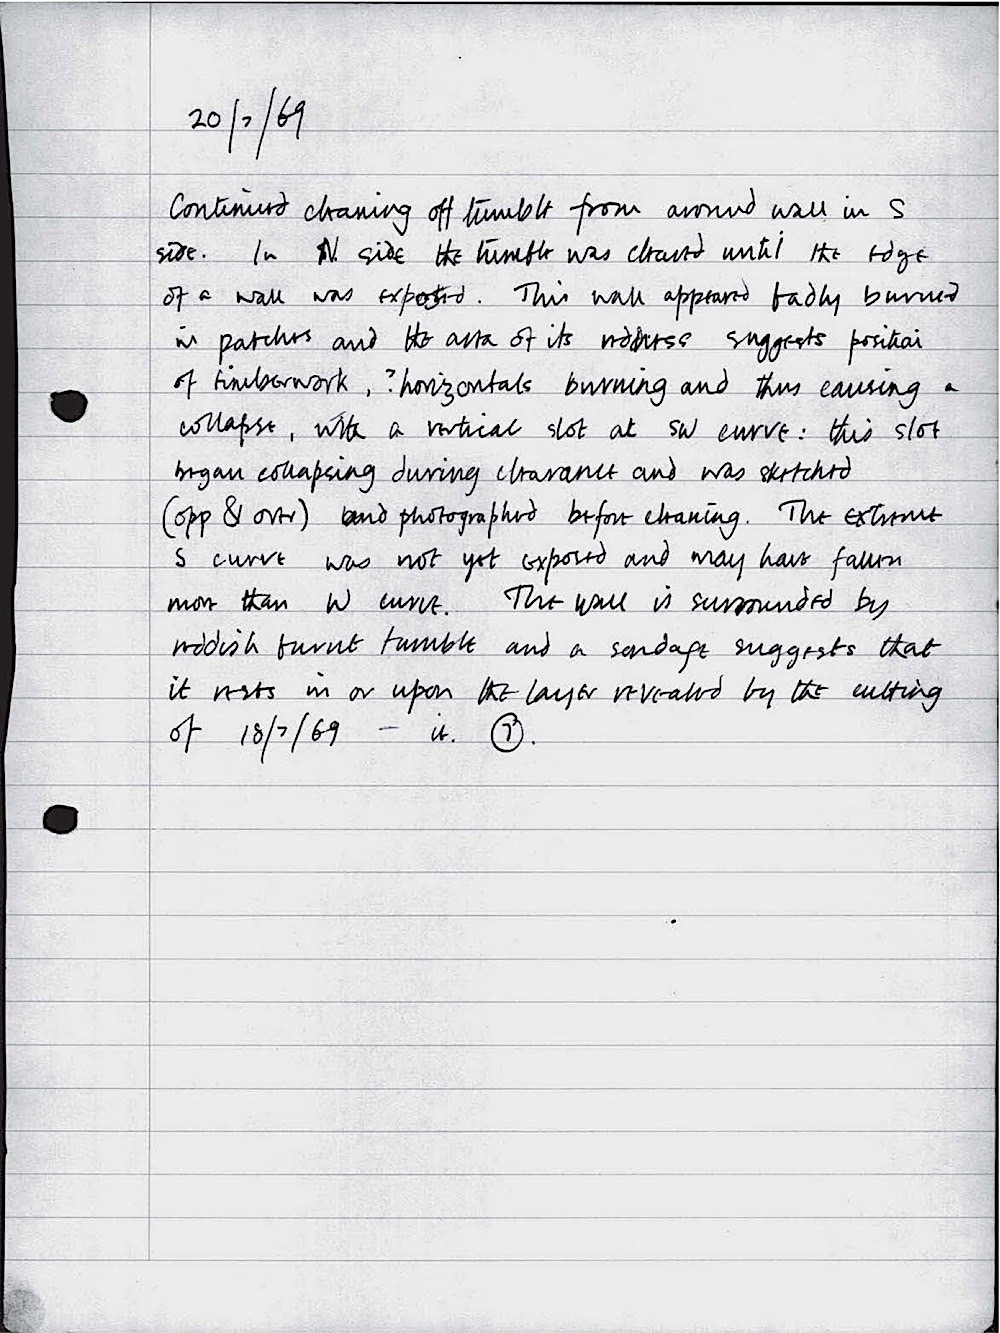 20/7/69
Continued cleaning off tumble from around wall in S
side. In N side the tumble was cleared until the edge
of a wall was exposed. This wall appeared badly burned
in patches and the area of its redness suggests position
of timberwork, ?horizontals burning and thus causing a
collapse, with a vertical slot at SW curve: this slot
began collapsing during clearance and was sketched
(opp & over) and photographed before cleaning. The extreme
S curve was not yet exposed and may have fallen
more than W curve. The wall is surrounded by
reddish burnt tumble and a sondage suggests that
it rests in or upon the layer revealed by the cutting
of 18/7/69 - ie. 7.